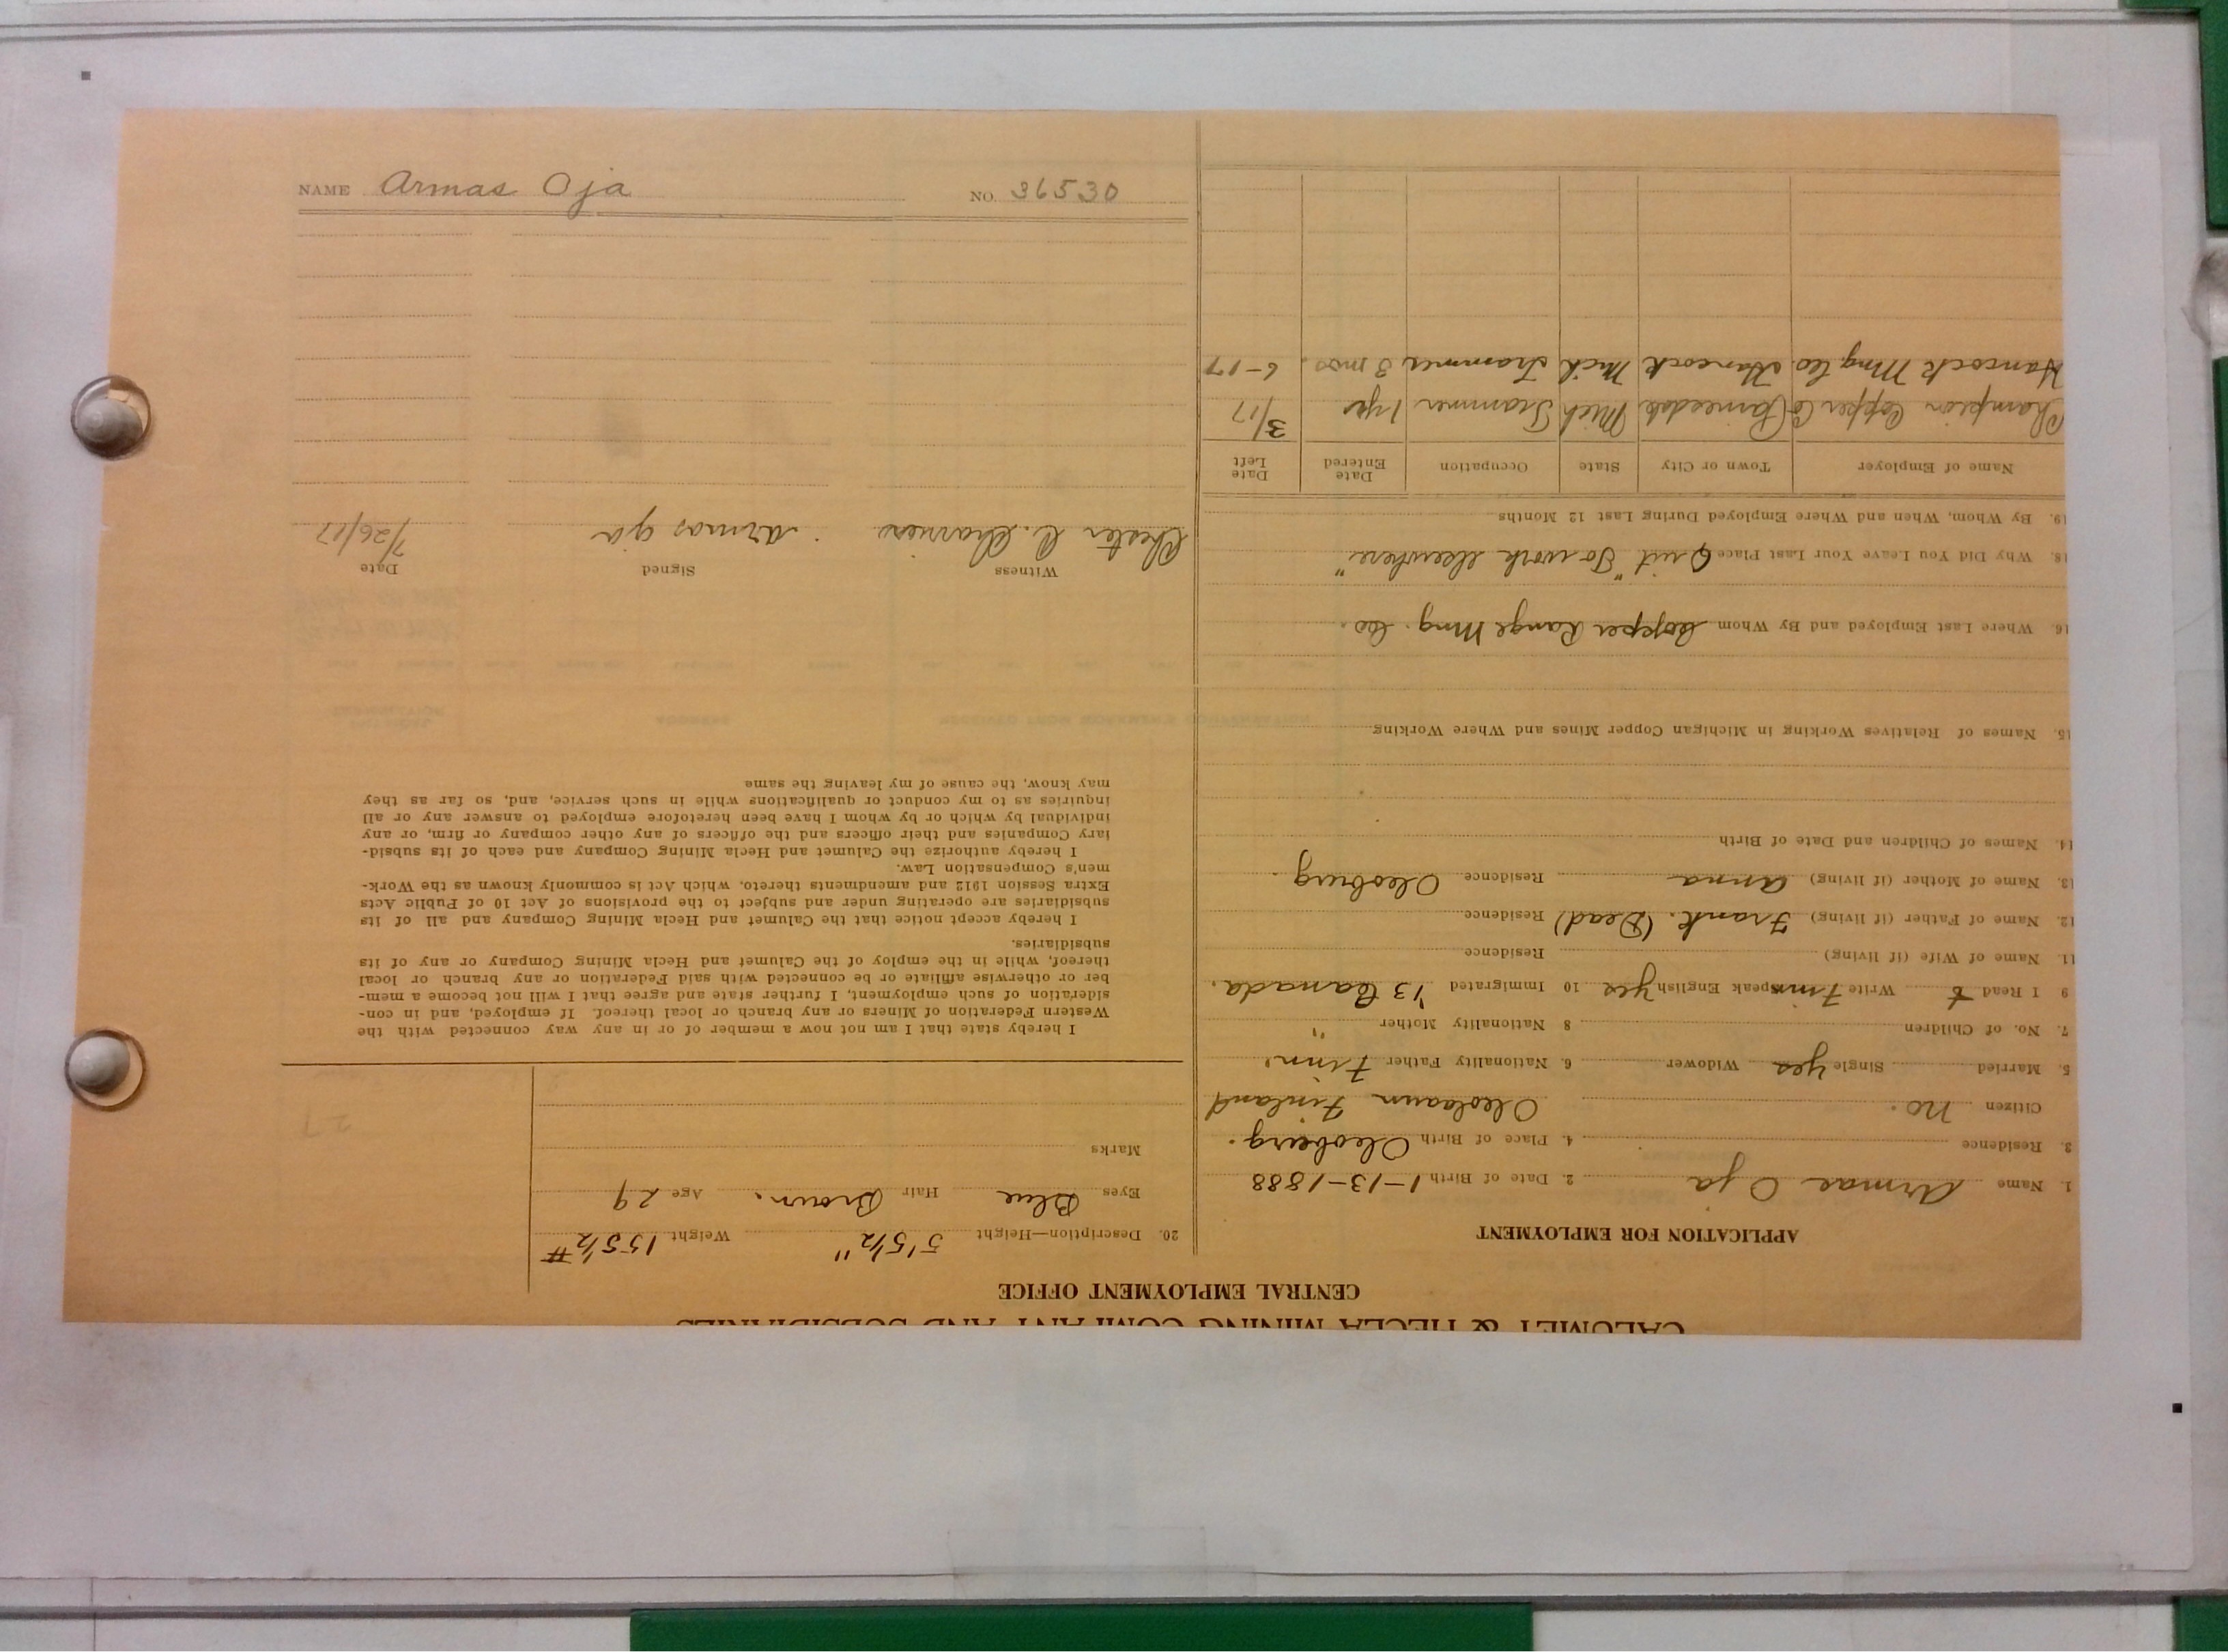 NAME Armas Oja NO. 36530
CALUMET & HECLA MINING COMPANY AND SUBSIDIARIES
CENTRAL EMPLOYMENT OFFICE
APPLICATION FOR EMPLOYMENT
1. Name Armas Oja 2. Date of Birth 1-13-1888
3. Residence 4. Place of Birth Oleoburg.
Citizen no. Finland
5. Married Single yes Widower 6. Nationality Father Finn.
7. No. of Children 8 Nationality Mother "
9 I Read Write Finn Speak English yes 10 Immigrated '13 Canada.
11. Name of Wife (if living) Residence
12. Name of Father (if living) Frank. (Dead) Residence
13. Name of Mother (if living) Anna Residence Oleoburg.
14. Names of Children and Date of Birth
15. Names of Relatives Working in Michigan Copper Mines and Where Working
16. Where Last Employed and By Whom Copper Range Mng. Co.
18. Why Did You Leave Your Last Place Quit "To work elsewhere"
19. By Whom, When and Where Employed During Last 12 Months
Name of Employer Town or City State Occupation Date Entered Date Left
Champion Copper Co Painesdale Mich Trammer 1 yr 3/17
Hancock Mng Co. Hancock Mich Trammer 3 mos. 6-17
20. Description—Height 5'5½" Weight 155½ #
Eyes Blue Hair Brown. Age 29
Marks
27
I hereby state that I am not now a member of or in any way connected with the
Western Federation of Miners or any branch or local thereof. If employed, and in con-
sideration of such employment, I further state and agree that I will not become a mem-
ber or otherwise affiliate or be connected with said Federation or any branch or local
thereof, while in the employ of the Calumet and Hecla Mining Company or any of its
subsidiaries.
I hereby accept notice that the Calumet and Hecla Mining Company and all of its
subsidiaries are operating under and subject to the provisions of Act 10 of Public Acts
Extra Session 1912 and amendments thereto, which Act is commonly known as the Work-
men's Compensation Law.
I hereby authorize the Calumet and Hecla Mining Company and each of its subsid-
iary Companies and their officers and the officers of any other company or firm, or any
individual by which or by whom I have been heretofore employed to answer any or all
inquiries as to my conduct or qualifications while in such service, and, so far as they
may know, the cause of my leaving the same
Witness Signed Date
Chester C. Armas Oja 7/26/17